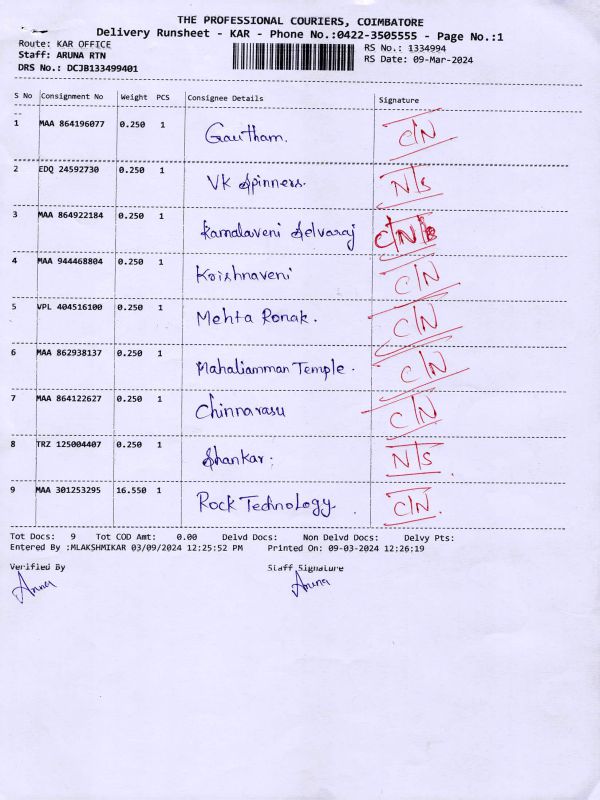 THE PROFESSIONAL COURIERS, COIMBATORE
Delivery Runsheet - KAR - Phone No.:0422-3505555 - Page No.:1
Route: KAR OFFICE RS No.: 1334994
Staff: ARUNA RTN RS Date: 09-Mar-2024
DRS No.: DCJB133499401
S No Consignment No Weight PCS Consignee Details Signature
1 MAA 864196077 0.250 1 Gautham. C/N
2 EDQ 24592730 0.250 1 VK Spinners. N/S
3 MAA 864922184 0.250 1 Kamalaveni Selvaraj C/N
4 MAA 944468804 0.250 1 Krishnaveni C/N
5 VPL 404516100 0.250 1 Mehta Ronak. C/N
6 MAA 862938137 0.250 1 Mahaliamman Temple. C/N
7 MAA 864122627 0.250 1 Chinnarasu C/N
8 TRZ 125004407 0.250 1 Shankar. N/S
9 MAA 301253295 16.550 1 Rock Technology. C/N.
Tot Docs: 9 Tot COD Amt: 0.00 Delvd Docs: Non Delvd Docs: Delvy Pts:
Entered By :MLAKSHMIKAR 03/09/2024 12:25:52 PM Printed On: 09-03-2024 12:26:19
Verified By Staff Signature
Aruna Aruna